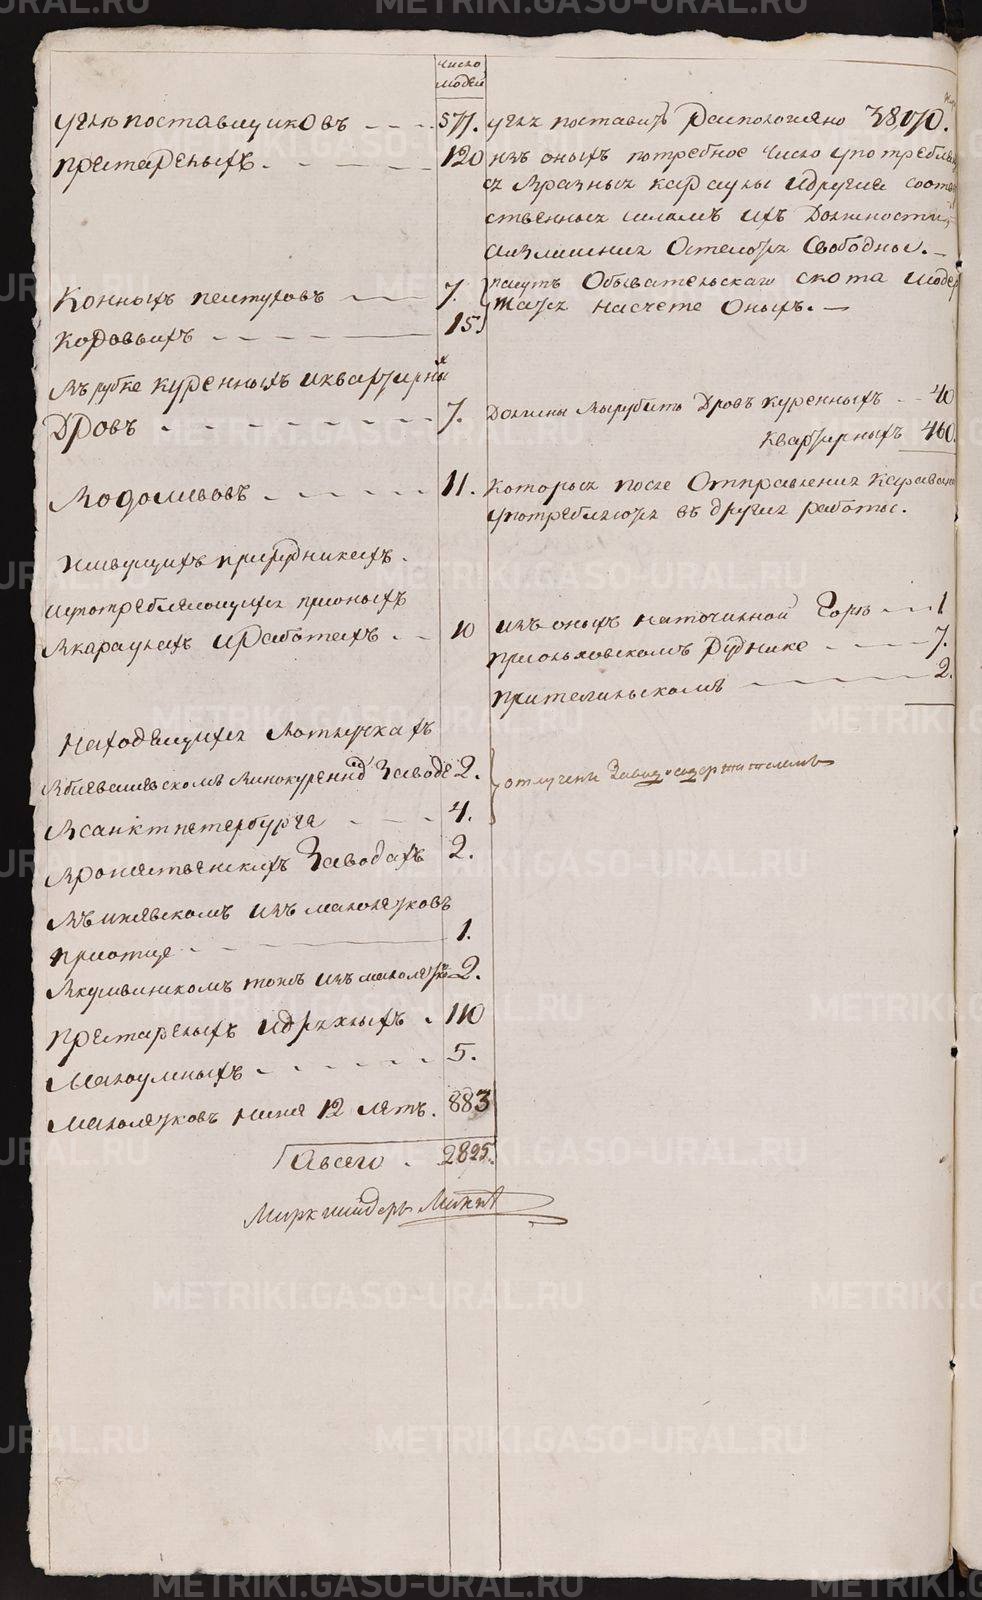 число
людей
угля поставщиковъ 577. угля поставить расположено 38170.
престарелыхъ 120 изъ оныхъ потребное число употребляю
ся в разныя караулы и другия соотве
ственныя силамъ ихъ должности
а излишния остаются свободны.
Конныхъ пастуховъ 7. пасутъ обывательскаго скота и содер
жатся насчете оныхъ.
коровьихъ 15.
въ рубке куренныхъ и квартирны
дровъ 7. должны вырубить дровъ куренныхъ 40
квартирныхъ 460.
водоливовъ 11. которыя после отправления каравана
употребляются въ другия работы.
живущихъ прирудникахъ.
и употребляющихся при оныхъ
в караулахъ и работахъ 10 изъ оныхъ на точильной горе 1
приольховскомъ руднике 7.
при 2.
находящихся в отлучкахъ
в винокуреннод заводе 2. отлучены заводосодержателемъ
в санктпетербурге 4.
заводахъ 2.
въ изъ малолетковъ
при отце 1.
в кушвинскомъ тожъ изъ малолет 2.
престарелыхъ и дряхлыхъ 110
малоумныхъ 5.
малолетковъ ниже 12 летъ. 883
А всего 2825.
Маркшейдеръ
METRIKI.GASO-URAL.RU